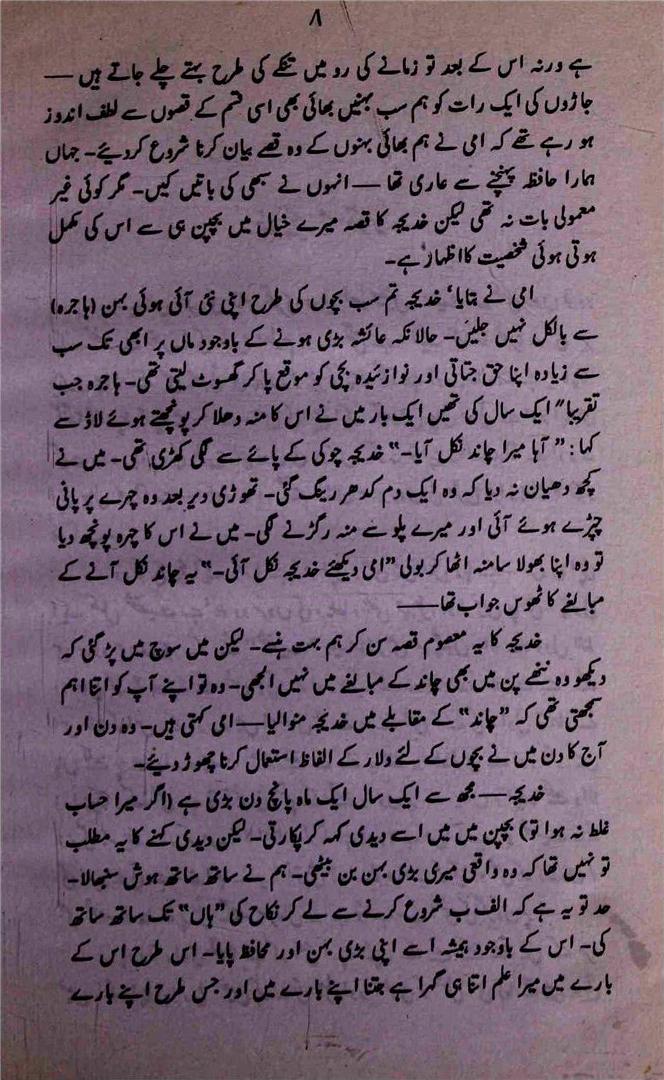 ۸
ہے ورنہ اس کے بعد تو زمانے کی رو میں تنکے کی طرح بہتے چلے جاتے ہیں —
جاڑوں کی ایک رات کو ہم سب بہنیں بھائی بھی اسی قسم کے قصوں سے لطف اندوز
ہو رہے تھے کہ امی نے ہم بھائی بہنوں کے وہ قصے بیان کرنا شروع کردیئے۔ جہاں
ہمارا حافظہ پہنچنے سے عاری تھا — انہوں نے سبھی کی باتیں کیں۔ مگر کوئی غیر
معمولی بات نہ تھی لیکن خدیجہ کا قصہ میرے خیال میں بچپن ہی سے اس کی مکمل
ہوتی ہوئی شخصیت کا اظہار ہے۔
امی نے بتایا، خدیجہ تم سب بچوں کی طرح اپنی نئی آئی ہوئی بہن (ہاجرہ)
سے بالکل نہیں جلیں۔ حالانکہ عائشہ بڑی ہونے کے باوجود ماں پر ابھی تک سب
سے زیادہ اپنا حق جتاتی اور نوزائیدہ بچی کو موقع پا کر گھسوٹ لیتی تھی۔ ہاجرہ جب
تقریبا" ایک سال کی تھیں ایک بار میں نے اس کا منہ دھلا کر پونچھتے ہوئے لاڈ سے
کہا: "آہا میرا چاند نکل آیا۔" خدیجہ چوکی کے پائے سے لگی کھڑی تھی۔ میں نے
کچھ دھیان نہ دیا کہ وہ ایک دم کدھر رینگ گئی۔ تھوڑی دیر بعد وہ چہرے پر پانی
چپڑے ہوئے آئی اور میرے پلو سے منہ رگڑنے لگی۔ میں نے اس کا چہرہ پونچھ دیا
تو وہ اپنا بھولا سا منہ اٹھا کر بولی "امی دیکھئے خدیجہ نکل آئی۔" یہ چاند نکل آنے کے
مبالغے کا ٹھوس جواب تھا —
خدیجہ کا یہ معصوم قصہ سن کر ہم بہت ہنسے۔ لیکن میں سوچ میں پڑ گئی کہ
دیکھو وہ ننھے پن میں بھی چاند کے مبالغے میں نہیں الجھی۔ وہ تو اپنے آپ کو اتنا اہم
سمجھتی تھی کہ "چاند" کے مقابلے میں خدیجہ منوالیا — امی کہتی ہیں۔ وہ دن اور
آج کا دن میں نے بچوں کے لئے دلار کے الفاظ استعمال کرنا چھوڑ دیئے۔
خدیجہ — مجھ سے ایک سال ایک ماہ پانچ دن بڑی ہے (اگر میرا حساب
غلط نہ ہوا تو) بچپن میں میں اسے دیدی کہہ کر پکارتی۔ لیکن دیدی کہنے کا یہ مطلب
تو نہیں تھا کہ وہ واقعی میری بڑی بہن بن بیٹھی۔ ہم نے ساتھ ساتھ ہوش سنبھالا۔
حد تو یہ ہے کہ الف ب شروع کرنے سے لے کر نکاح کی "ہاں" تک ساتھ ساتھ
کی۔ اس کے باوجود ہمیشہ اسے اپنی بڑی بہن اور محافظ پایا۔ اس طرح اس کے
بارے میں میرا علم اتنا ہی گہرا ہے جتنا اپنے بارے میں اور جس طرح اپنے بارے